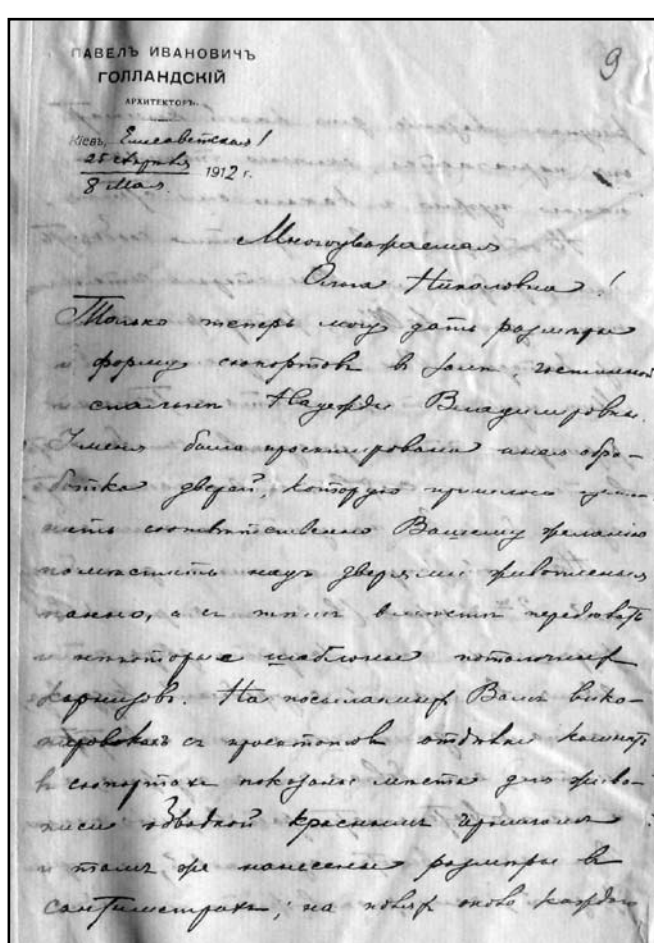 9
ПАВЕЛЪ ИВАНОВИЧЪ
ГОЛЛАНДСКІЙ
АРХИТЕКТОРЪ
Кіевъ, Елисаветская 1
25 апрѣля
8 Мая 1912 г.
Многоуважаемая
Ольга Николовна!
Только теперь могу дать размѣры
и форму сюпортовъ в залѣ, гостинной
спальнѣ Надежды Владимировны.
У меня была проектирована иная обра-
ботка дверей, которую пришлось
нить соотвѣтственно Вашему желанію
помѣстить надъ дверями живописныя
панно, а съ тѣмъ вмѣстѣ передѣлать
и нѣкоторые шаблоны потолочныхъ
карнизовъ. На посылаемыхъ Вамъ выко-
пировкахъ съ проектовъ отдѣлки комнатъ
в сюпортахъ показаны мѣста для живо-
писи обводкой краснымъ
и тамъ же нанесены размѣры в
сантиметрахъ; на поляхъ около каждаго